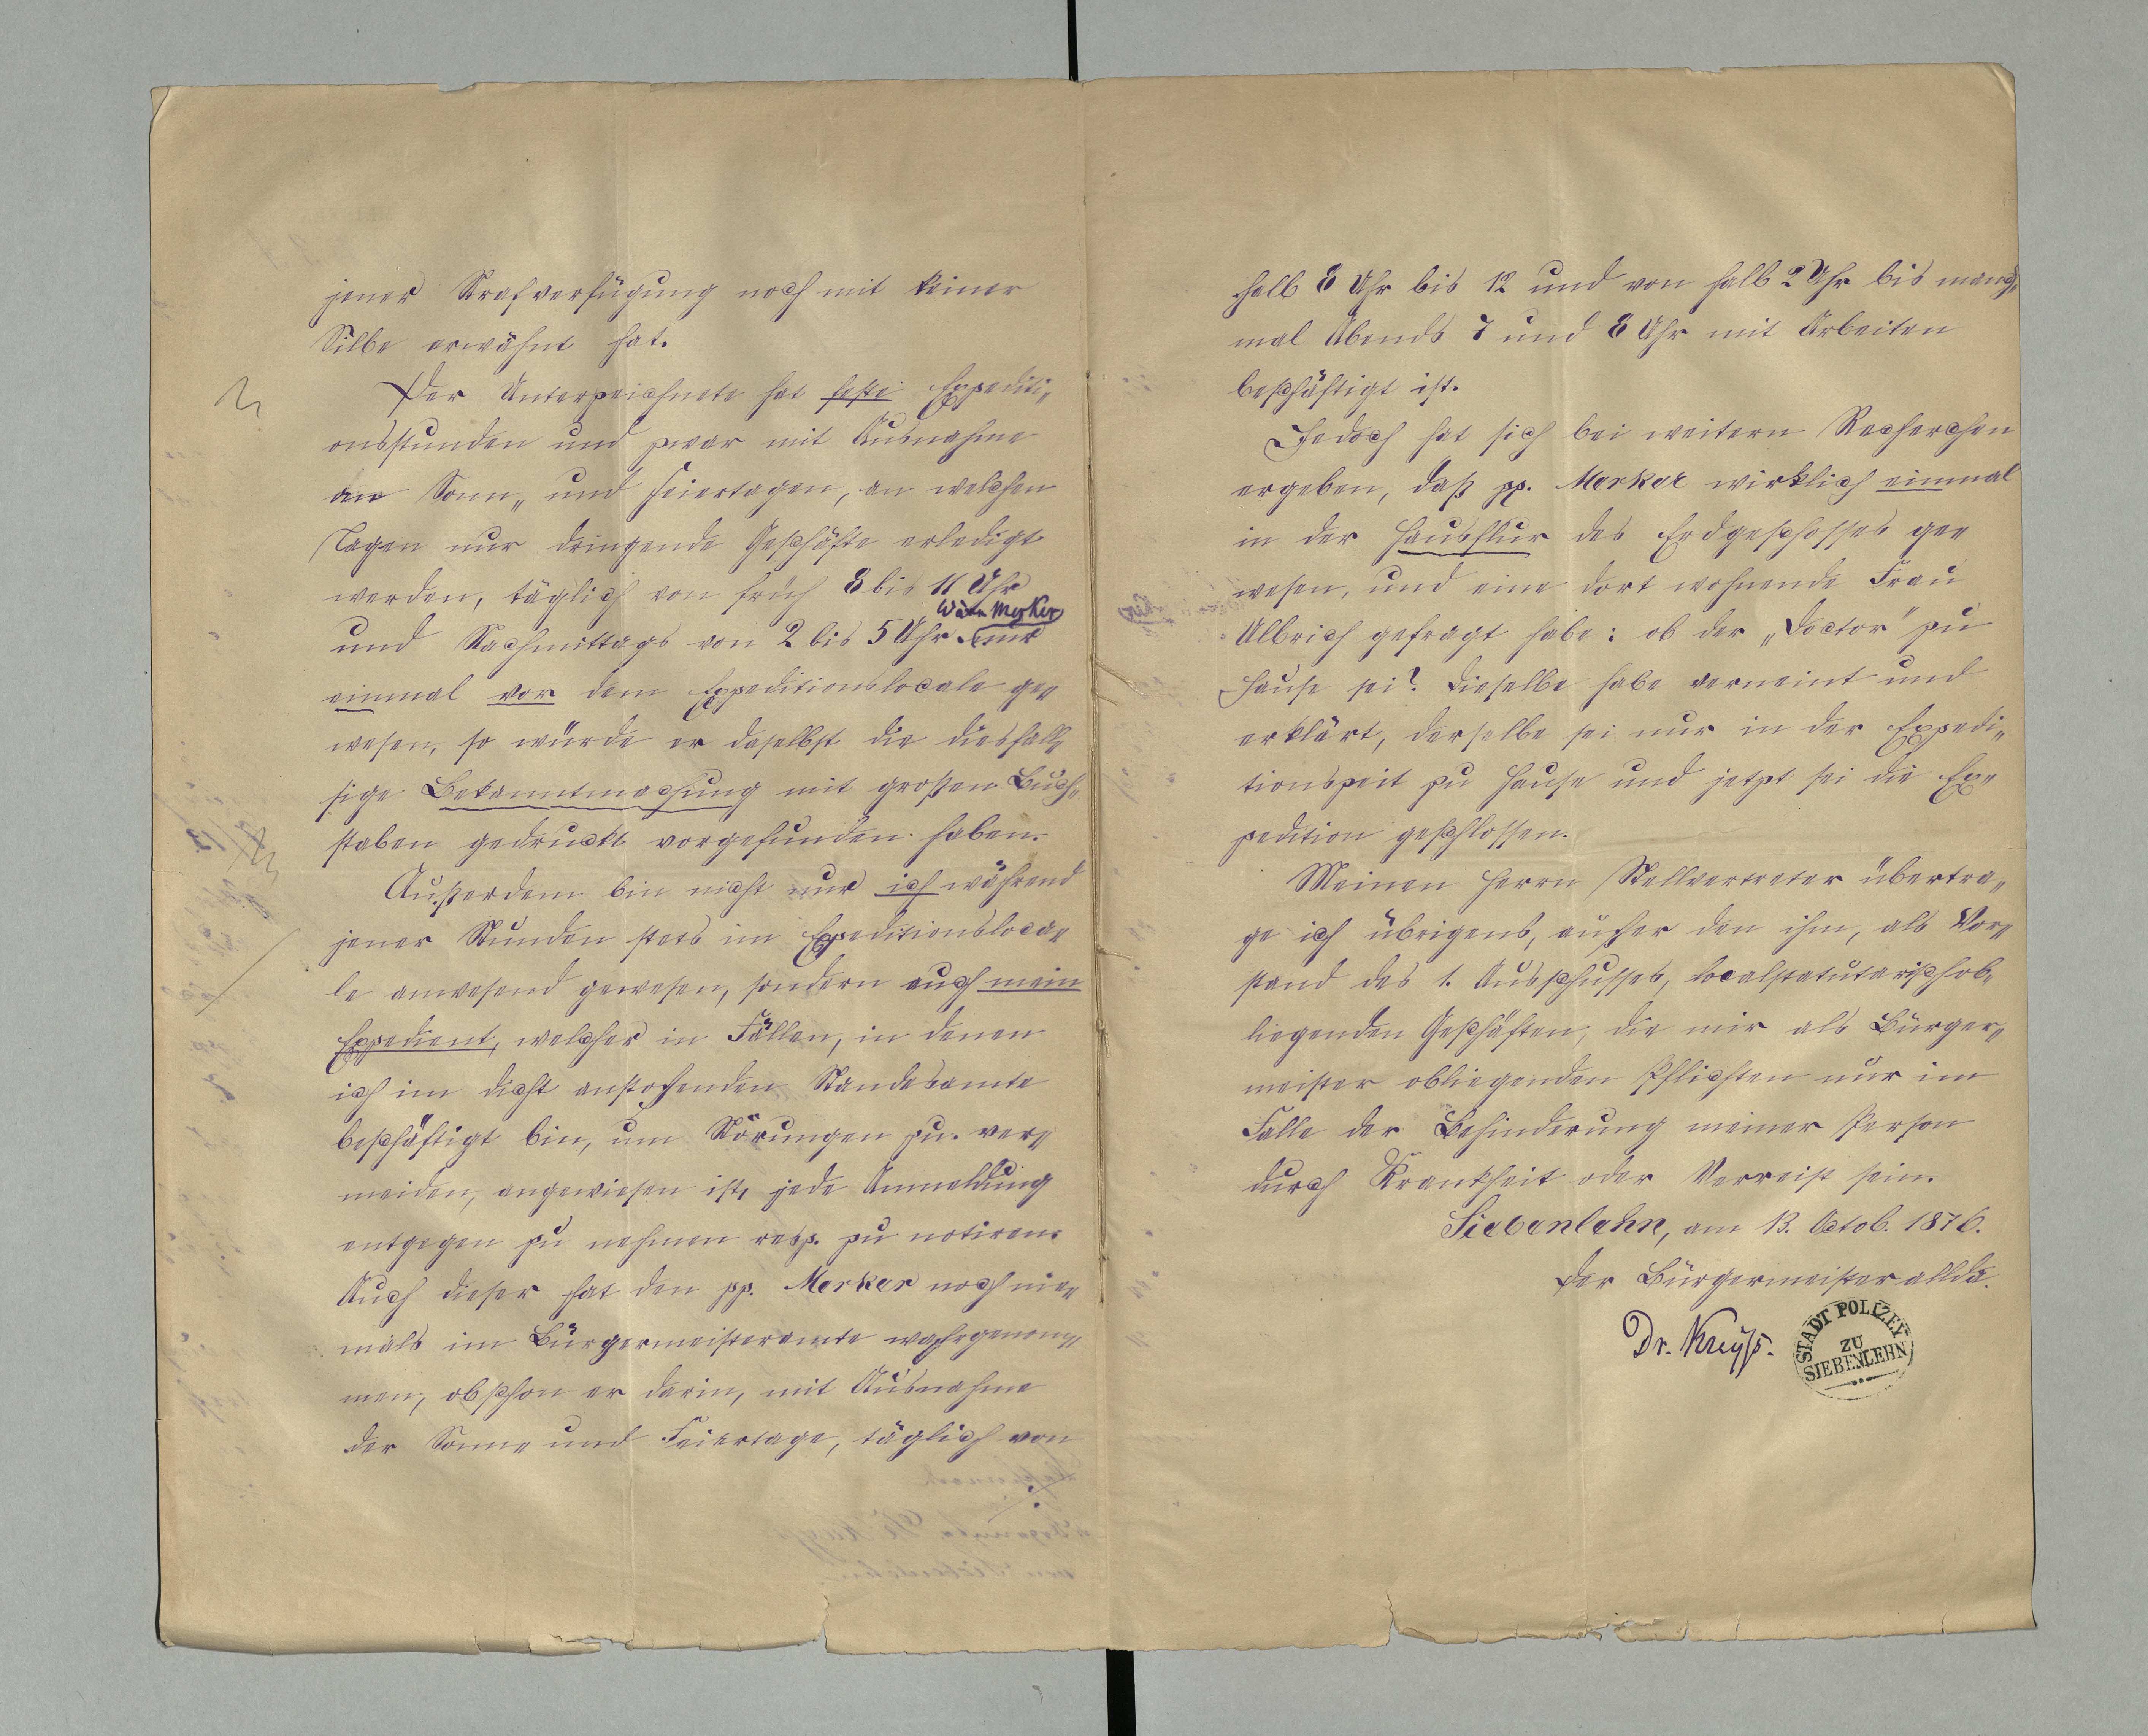 jener Strafverfügung noch mit keiner
Silbe erwähnt hat.
Der Unterzeichnete hat feste Expediti„
onsstunden und zwar mit Ausnahme
den Sonn„ und Feiertagen, an welchen
Tagen nur dringende Geschäfte erledigt
werden, täglich von früh 8 bis 11 Uhr
und Nachmittags von 2 bis 5 Uhr. Wäre Merker nur
einmal vor dem Expeditionslocale ge„
wesen, so würde er daselbst die diesfall„
sige Bekanntmachung mit großen Buch„
staben gedruckt vorgefunden haben.
Außerdem bin nicht nur ich während
jener Stunden stets im Expeditionsloca„
le anwesend gewesen, sondern auch mein
Expedient, welcher in Fällen, in denen
ich im dicht anstoßenden Standesamte
beschäftigt bin, um Störungen zu ver„
meiden, angewiesen ist, jede Anmeldung
entgegen zu nehmen resp. zu notiren.
Auch dieser hat den pp. Merker noch nie„
mals im Bürgermeisteramte wahrgenom„
men, obschon er darin, mit Ausnahme
der Sonn„ und Feiertage, täglich von
halb 8 Uhr bis 12 und von halb 2 Uhr bis manch„
mal Abends 7 und 8 Uhr mit Arbeiten
beschäftigt ist.
Jedoch hat sich bei weitern Recherchen
ergeben, daß pp. Merker wirklich einmal
in der Hausflur des Erdgeschosses ge„
wesen, und eine dort wohnende Frau
Ulbrich gefragt habe: ob der „Doctor" zu
Hause sei? Dieselbe habe verneint und
erklärt, derselbe sei nur in der Expedi„
tionszeit zu Hause und jetzt sei die Ex„
pedition geschlossen.
Meinen Herrn Stellvertreter übertra„
ge ich übrigens, außer den ihm, als Vor„
stand des 1. Ausschusses, localstatutarisch ob„
liegenden Geschäften, die mir als Bürger„
meister obliegenden Pflichten nur im
Falle der Behinderung meiner Person
durch Krankheit oder Verreist sein.
Siebenlehn, am 13. Octob. 1876.
Der Bürgermeister allda.
Dr. Kreyß.
STADT POLIZEY
ZU
SIEBENLEHN